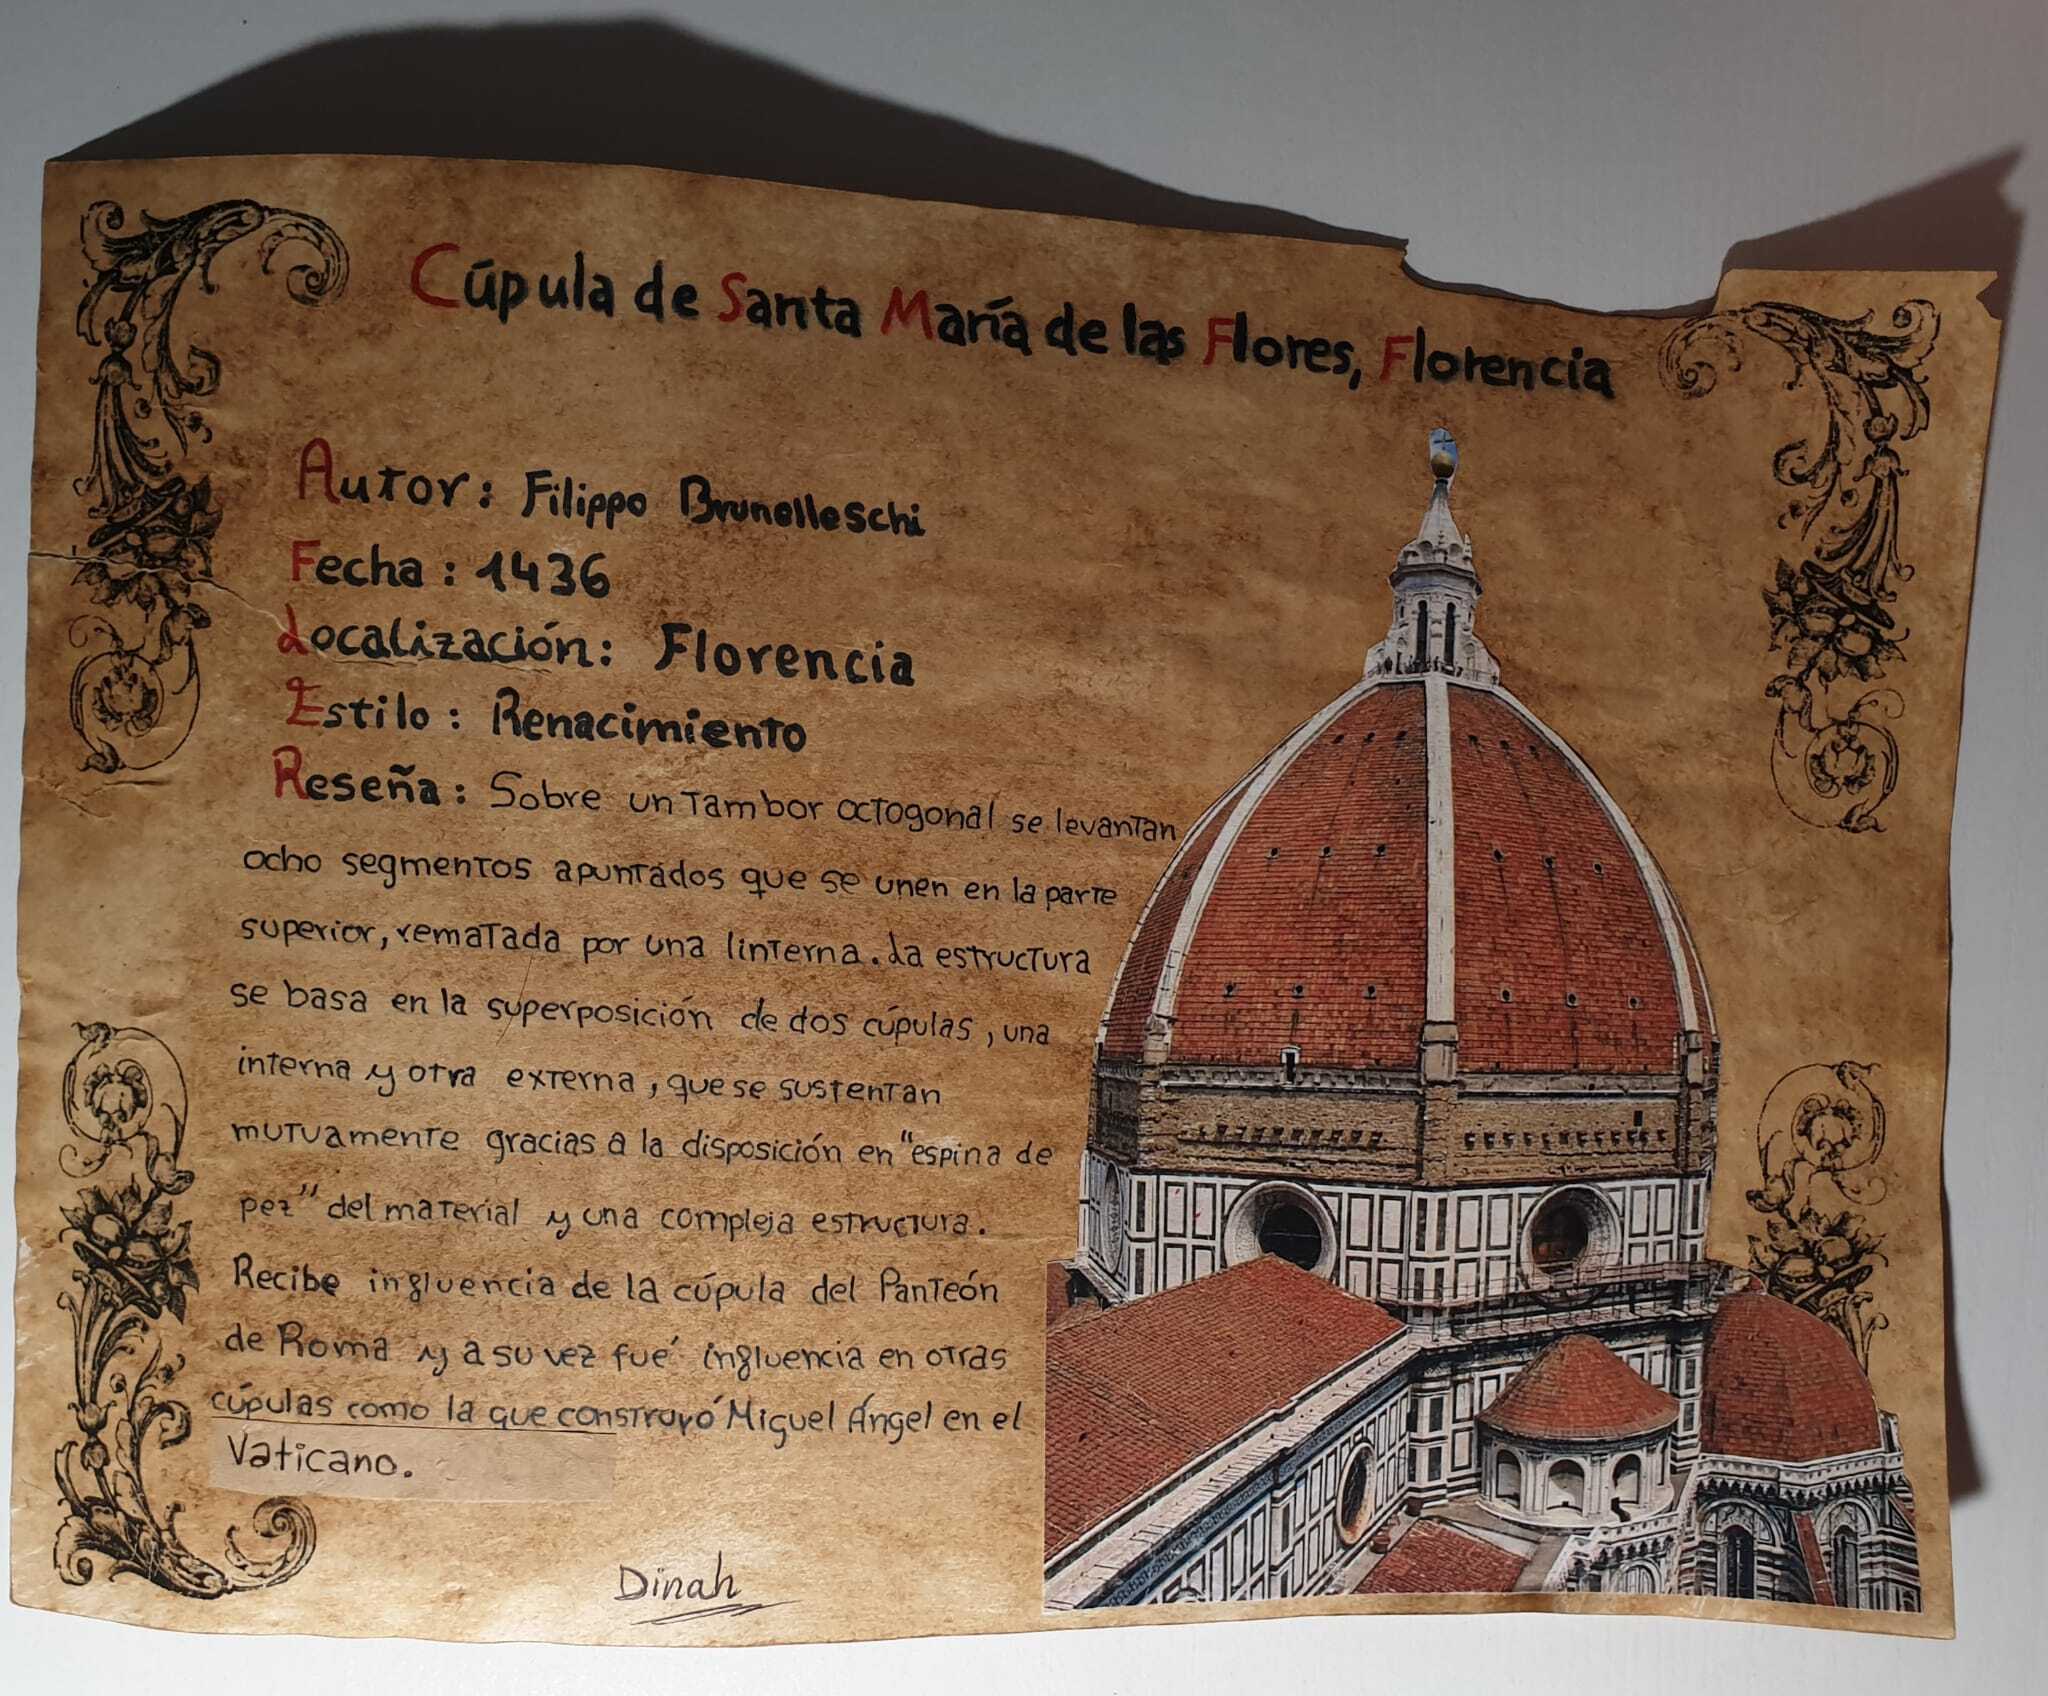 Cúpula de Santa María de las Flores, Florencia
Autor: Filippo Brunelleschi
Fecha: 1436
Localización: Florencia
Estilo: Renacimiento
Reseña: Sobre un tambor octogonal se levantan
ocho segmentos apuntados que se unen en la parte
superior, rematada por una linterna. La estructura
se basa en la superposición de dos cúpulas, una
interna y otra externa, que se sustentan
mutuamente gracias a la disposición en "espina de
pez" del material y una compleja estructura.
Recibe influencia de la cúpula del Panteón
de Roma y a su vez fué influencia en otras
cúpulas como la que construyó Miguel Ángel en el
Vaticano.
Dinah